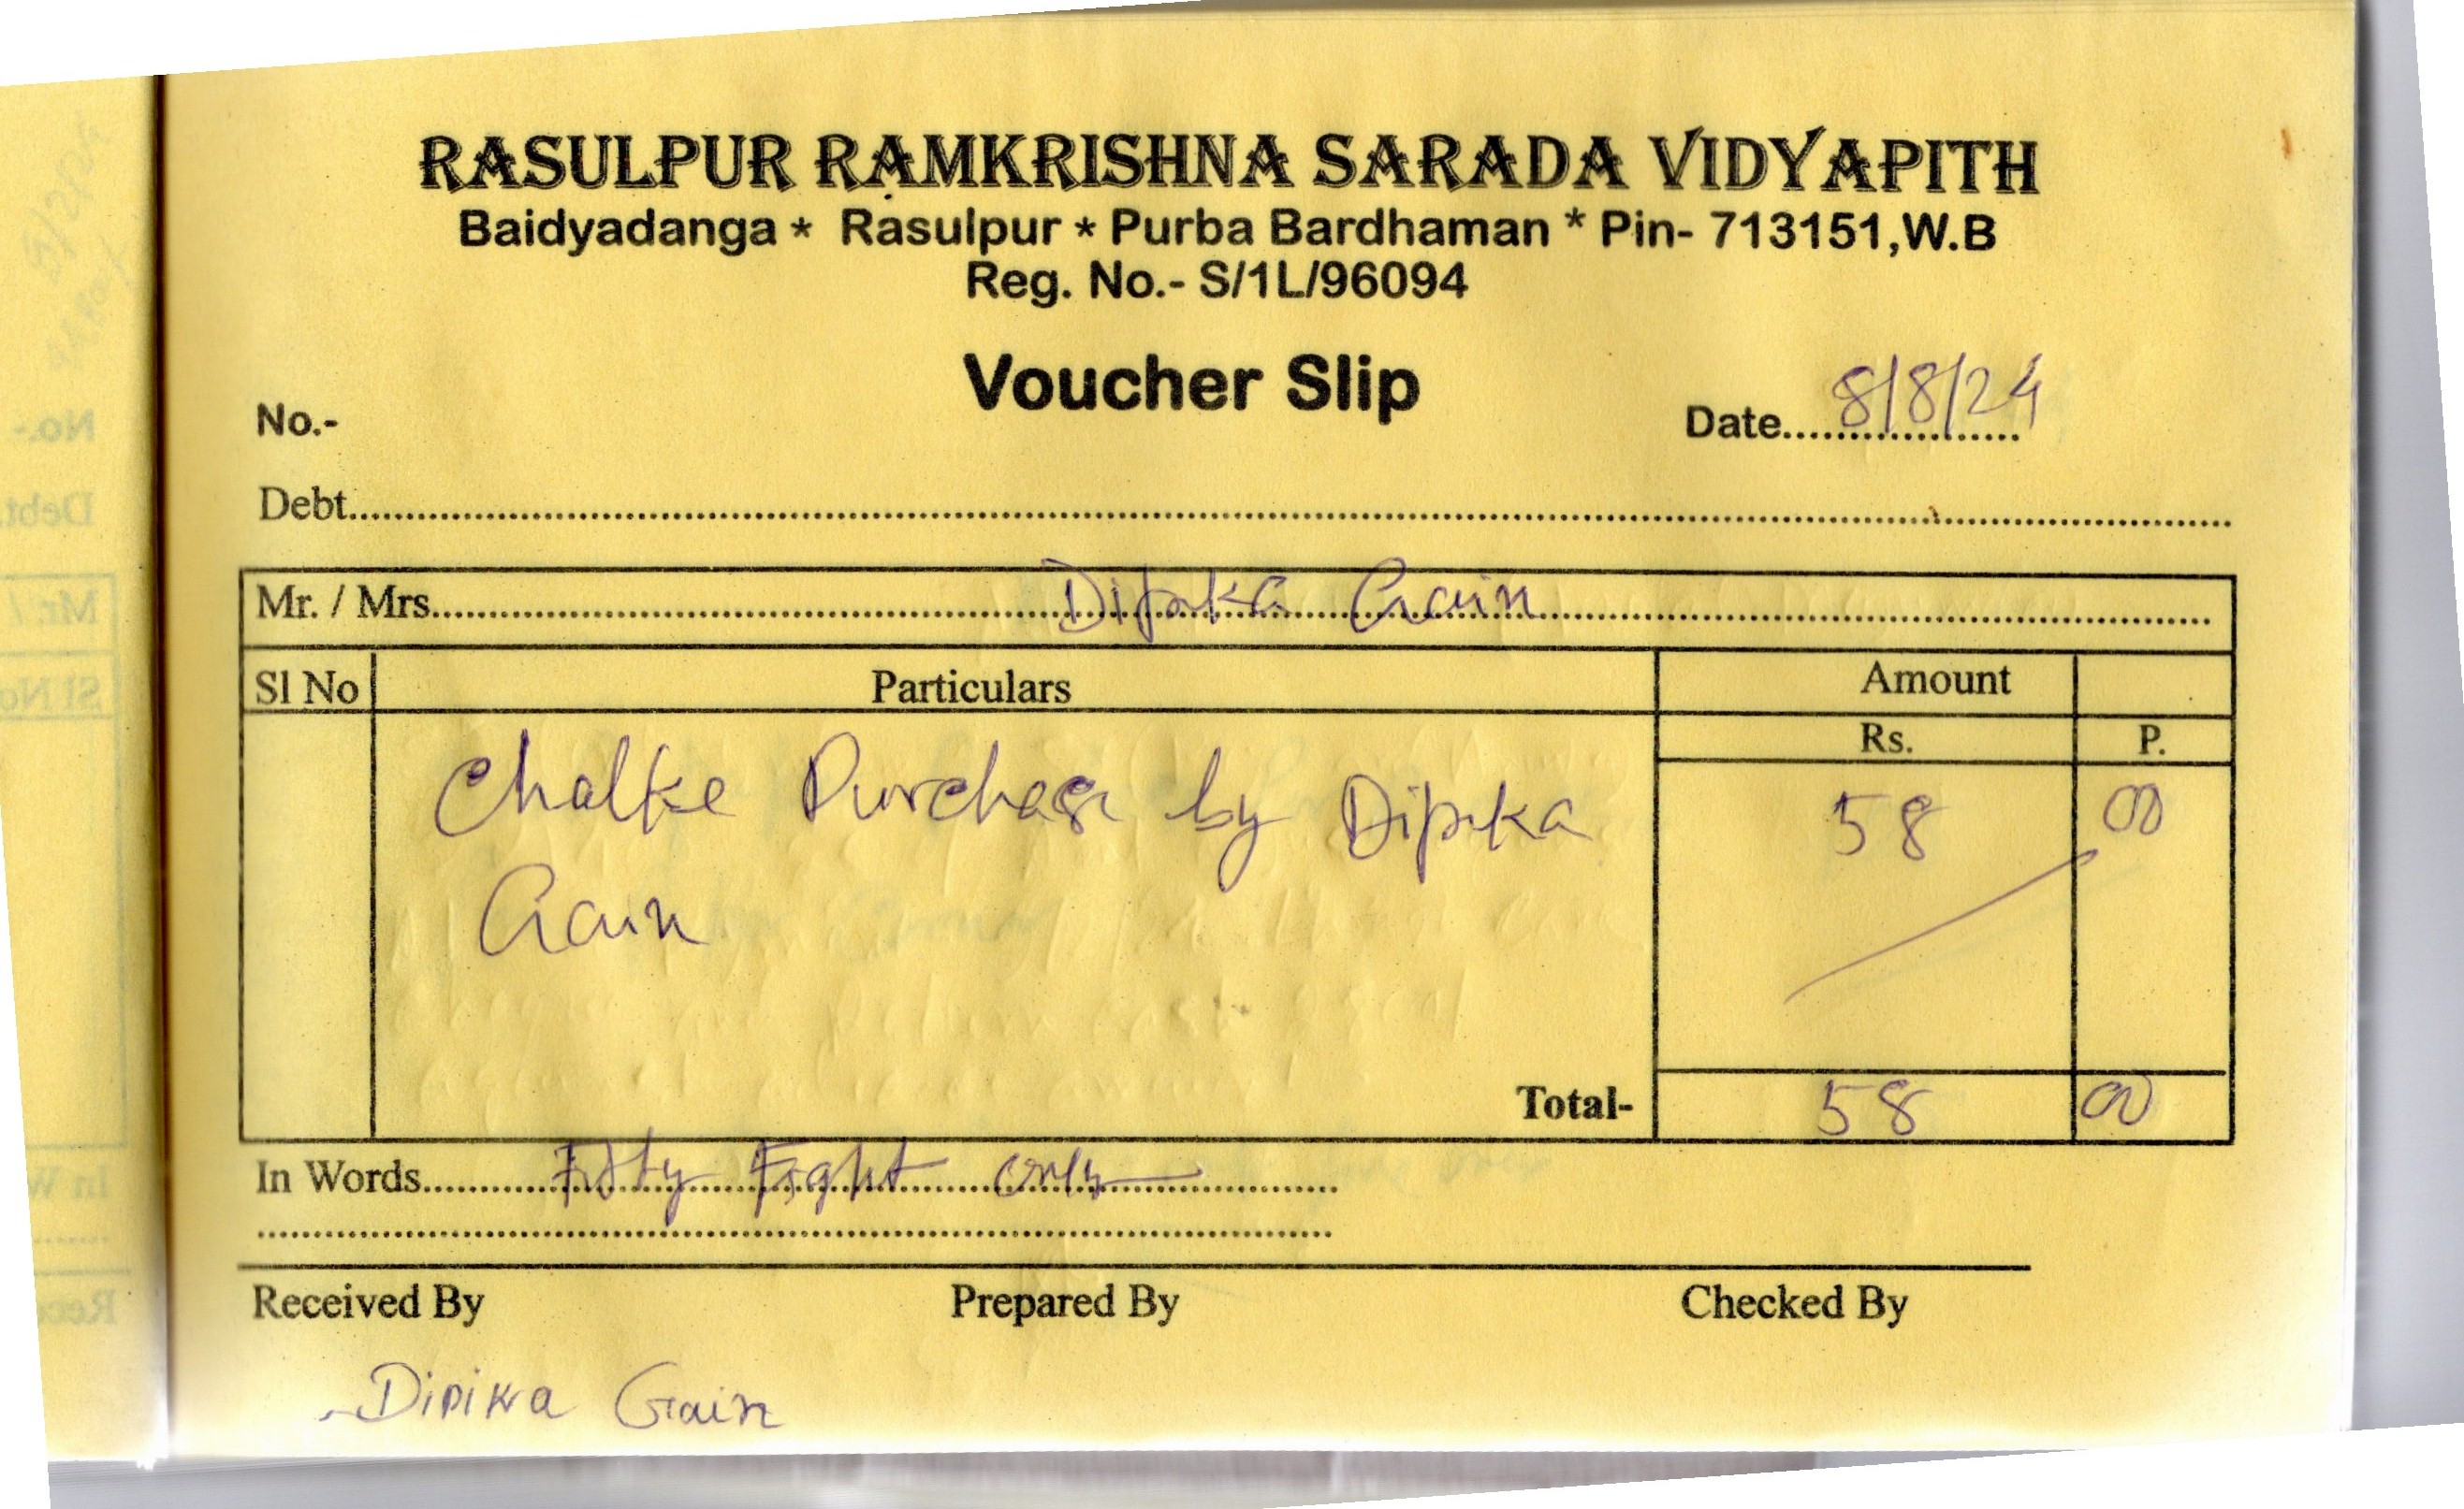 RASULPUR RAMKRISHNA SARADA VIDYAPITH
Baidyadanga * Rasulpur * Purba Bardhaman * Pin- 713151,W.B
Reg. No.- S/1L/96094
Voucher Slip
No.- Date.....8/8/24
Debt.....
Mr. / Mrs.....Dipika Gain
Sl No Particulars Amount
Rs. P.
Chalke Purchase by Dipika 58 00
Gain
Total- 58 00
In Words.....Fifty Eight only
Received By Prepared By Checked By
Dipika Gain